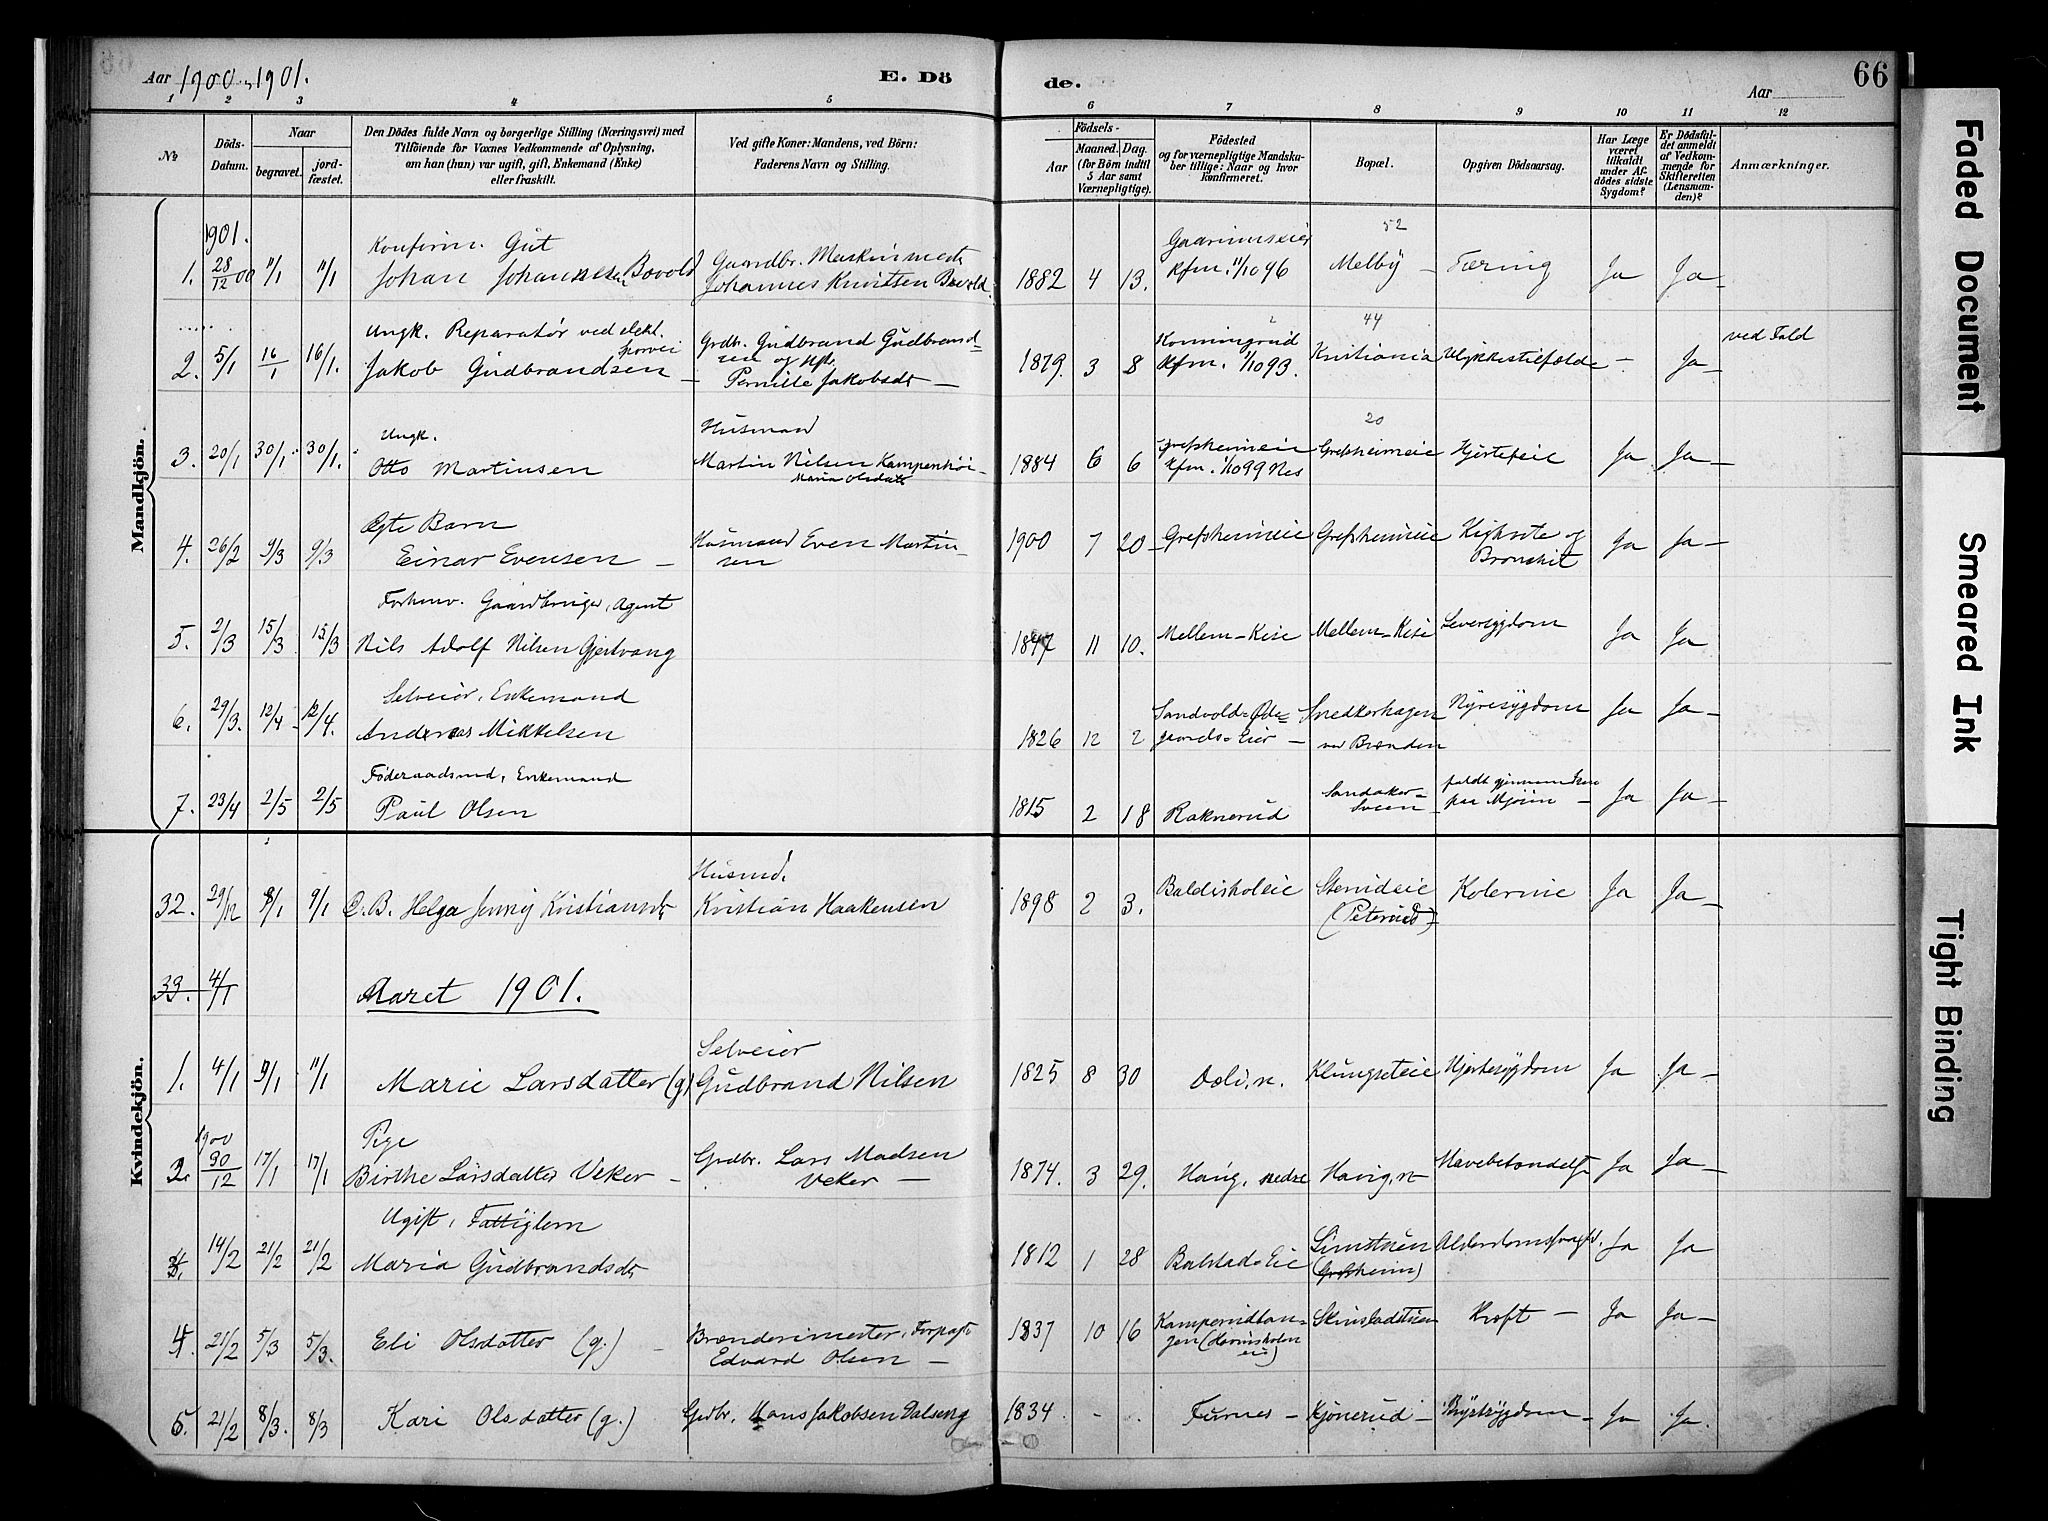 Aar 1900 1901.
E. Dö
de.
Aar
66
1 2 3 4 5 6 7 8 9 10 11 12
№
Döds-Datum.
Naar
begravet.
jord-fæstet.
Den Dödes fulde Navn og borgerlige Stilling (Næringsvei) med
Tilföiende for Voxnes Vedkommende af Oplysning,
om han (hun) var ugift, gift, Enkemand (Enke)
eller fraskilt.
Ved gifte Koner: Mandens, ved Börn:
Faderens Navn og Stilling.
Födsels-
Aar
Maaned. Dag.
(for Börn indtil
5 Aar samt
Værnepligtige).
Födested
og for værnepligtige Mandska-
ber tillige: Naar og hvor
konfirmeret.
Bopæl.
Opgiven Dödsaarsag.
Har Læge
været
tilkaldt
under Af-
dödes sidste
Sygdom?
Er Dödsfal-
det anmeldt
af Vedkom-
mende for
Skifteretten
(Lensman-
den)?
Anmærkninger.
Mandkjön.
1901.
Konfirm. Gut 52
1. 28/12 00 11/1 11/1 Johan Johannesen Bovold Gaardbr. Maskinmest. Johannes Knutsen Bovold. 1882 4 13. kfm. 11/10 96 Melby – Tæring Ja Ja –
Ungk. Reparatør ved elekt. sporvei 44 ved Fald
2. 5/1 16/1 16/1. Jakob Gudbrandsen – Grdbr. Gudbrand Gudbrand=
sen og Hst.
Pernille Jakobsdt – 1879. 3 8 Konningrud kfm. 1/10 93. Kristiania Ulykkestilfælde – Ja –
Ungk. Husmand 20
3. 20/1 30/1 30/1. Otto Martinsen Martin Nilsen Kampenhöi –
Maria Olsdatt 1884 6 6 Grefsheimeie kfm. 1/10 99 Nes Grefsheimeie Hjertefeil Ja Ja –
Ægte Barn
4. 26/2 9/3 9/3 Einar Evensen – Husmand Even Martin-
sen 1900 7 20 – Grefsheimeie Grefsheimeie Kighoste og
Bronchit Ja Ja –
Forhenv. Gaardbruger, Agent
5. 2/3 15/3 15/3 Nils Adolf Nilsen Gjestvang 1847 11 10. Mellem-Kise Mellem-Kise Leversygdom Ja Ja
Selveier, Enkemand
6. 29/3. 12/4 12/4. Andreas Mikkelsen 1826 12 2 Sandvold= Øde=
gaards-Eier – Snedkerhagen
ved Brænden Nyresygdom Ja Ja –
Föderaadsmd, Enkemand
7. 23/4 2/5 2/5 Paul Olsen 1815 2 18 Raknerud Sandaker-
Sveen – faldt gjennem Isen
paa Mjösen – Ja Ja –
Kvindekjön.
Husmd.
32. 29/12 8/1 9/1 Æ.B. Helga Jenny Kristiansdt Kristian Haakensen 1898 2 3. Baldisholeie Stenideie
(Peterud) Kolerine Ja Ja –
33. 4/1 Aaret 1901.
Selveier
1. 4/1 9/1 11/1 Marie Larsdatter (g) Gudbrand Nilsen 1825 8 30 Doli, n. Klungseteie Hjertesygdom Ja Ja –
1900 Pige
2. 30/12 17/1 17/1 Birthe Larsdatter Veker – Grdbr. Lars Madsen
Veker – 1874. 3 29. Haug, nedre Haug, n Mavebetændelse Ja Ja –
Ugift, Fattiglem
3. 14/2 21/2 21/2 Maria Gudbrandsdt 1812 1 28 Balstad-Eie Limstuen
(Grefsheim) Alderdomssvagh. Ja Ja
4. 21/2 5/3 5/3. Eli Olsdatter (g.) – Brænderimester, Forpagt.
Edvard Olsen – 1837 10 16 Skinstadstuen Kræft – Ja Ja –
5. 21/2 8/3. 8/3 Kari Olsdatter (g.) Grdbr. Hans Jakobsen Dalseng 1834 - - Furnes – Kjönerud – Brystsygdom – Ja Ja.
Faded Document
Smeared Ink
Tight Binding